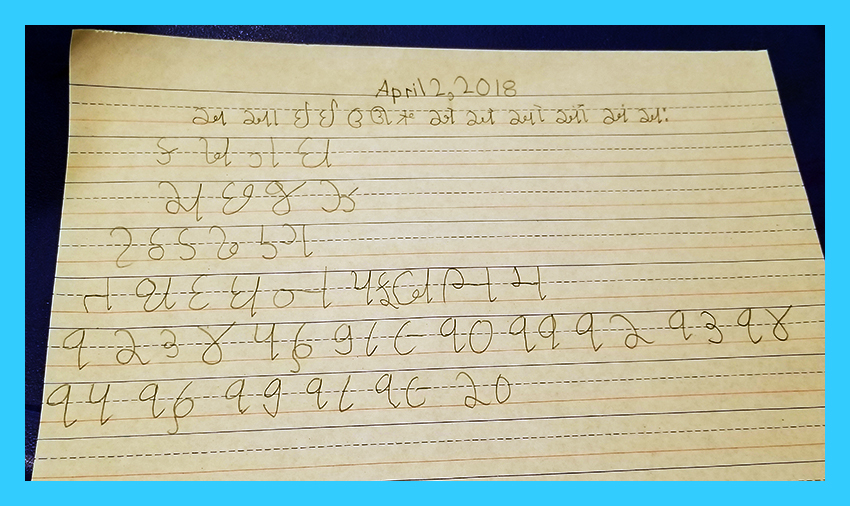 April 2, 2018
અ આ ઇ ઈ ઉ ઊ ઋ એ ઐ ઓ ઔ અં અઃ
ક ખ ગ ઘ
ચ છ જ ઝ
ટ ઠ ડ ઢ ણ
ત થ દ ધ ન પ ફ બ ભ મ
૧ ૨ ૩ ૪ ૫ ૬ ૭ ૮ ૯ ૧૦ ૧૧ ૧૨ ૧૩ ૧૪
૧૫ ૧૬ ૧૭ ૧૮ ૧૯ ૨૦